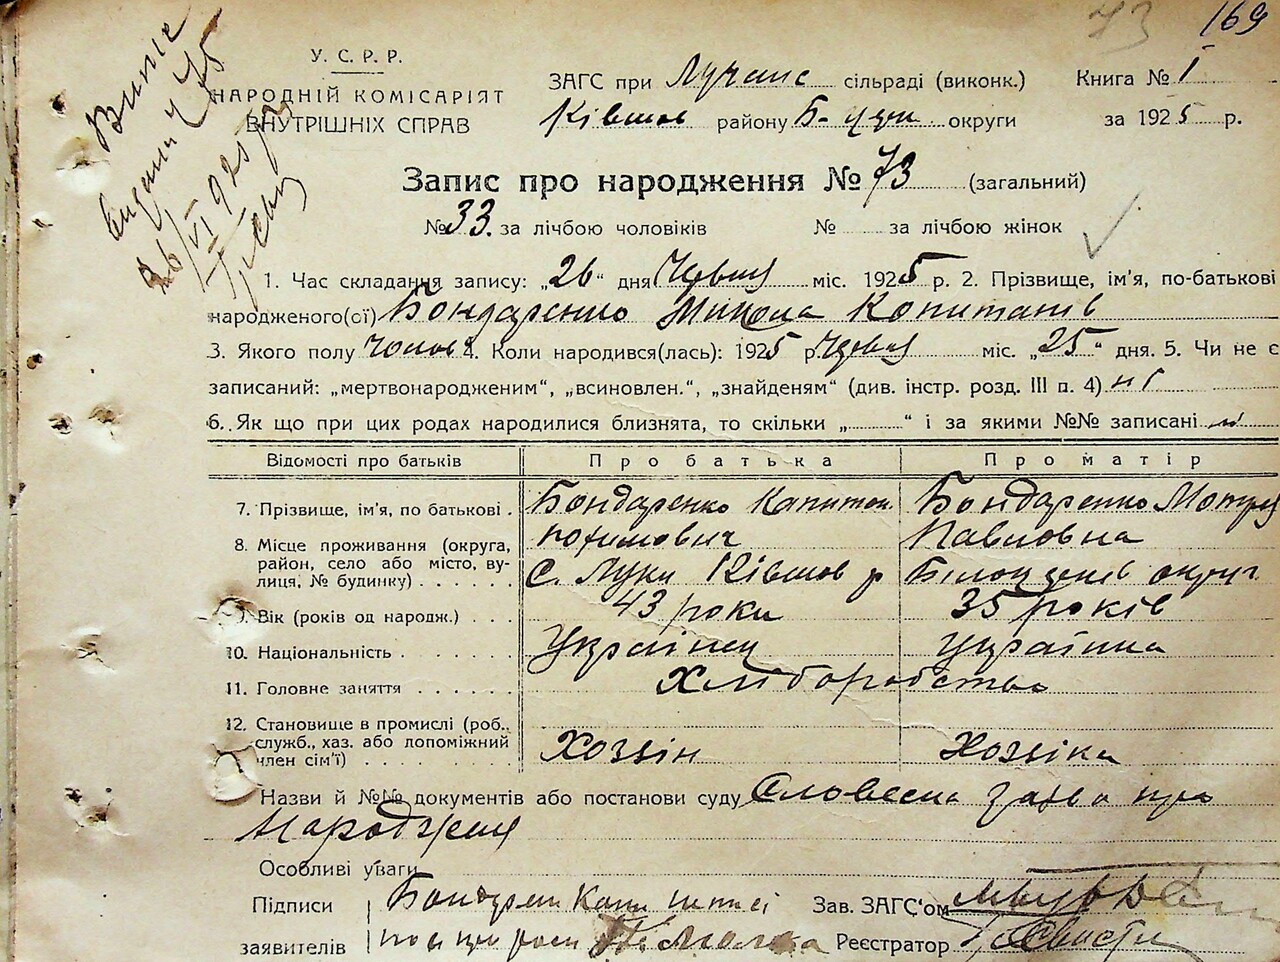 73 169
У. С. Р. Р.
НАРОДНІЙ КОМІСАРІЯТ
ВНУТРІШНІХ СПРАВ
ЗАГС при Лучанс сільраді (виконк.) Книга № 1
Ківшов району Б-церк округи за 1925 р.
Запис про народження № 73 (загальний)
№ 33. за лічбою чоловіків № за лічбою жінок
1. Час складання запису: „26“ дня Червня міс. 1925 р. 2. Прізвище, ім'я, по-батькові
народженого(ої) Бондаренко Микола Копитанів
3. Якого полу чолов 4. Коли народився(лась): 1925 р. Червня міс. „25“ дня. 5. Чи не є
записаний: „мертвонародженим“, „всиновлен.“, „знайденям“ (див. інстр. розд. III п. 4) ні
6. Як що при цих родах народилися близнята, то скільки „ “ і за якими №№ записані
Відомості про батьків Про батька Про матір
7. Прізвище, ім'я, по батькові . Бондаренко Капитон Бондаренко Мотря
Юхимович Павловна
8. Місце проживання (округа,
район, село або місто, ву-
лиця, № будинку) . . . . . . С. Луки Ківшов р Білоцерків округи
9. Вік (років од народж.) . . . 43 роки 35 років
10. Національність . . . . . . Українец Українка
11. Головне заняття . . . . . . Хліборобство
12. Становище в промислі (роб.,
служб., хаз. або допоміжний
член сім'ї) . . . . . . . . Хозяін Хозяіка
Назви й №№ документів або постанови суду Словесна заява про
народження
Особливі уваги
Підписи Бондарен Зав. ЗАГС'ом
заявителів Реєстратор